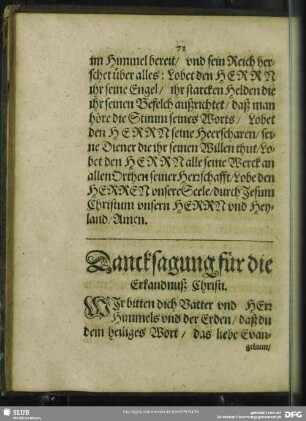 72
im Himmel bereit/ vnd sein Reich her-
schet über alles: Lobet den HERRN
ihr seine Engel/ ihr starcken Helden die
ihr seinen Befelch außrichtet/ daß man
höre die Stimm seines Worts/ Lobet
den HERRN seine Heerscharen/ sei-
ne Diener die ihr seinen Willen thut/ Lo-
bet den HERRN alle seine Werck an
allen Orthen seiner Herrschafft/ Lobe den
HERREN vnsere Seele/ durch Jesum
Christum vnsern HERRN vnd Hey-
land/ Amen.
Dancksagung für die
Erkandnuß Christi.
WIr bitten dich Vatter vnd HErr
Himmels vnd der Erden/ daß du
dem heiliges Wort/ das liebe Evan-
gelium/
SLUB
DFG